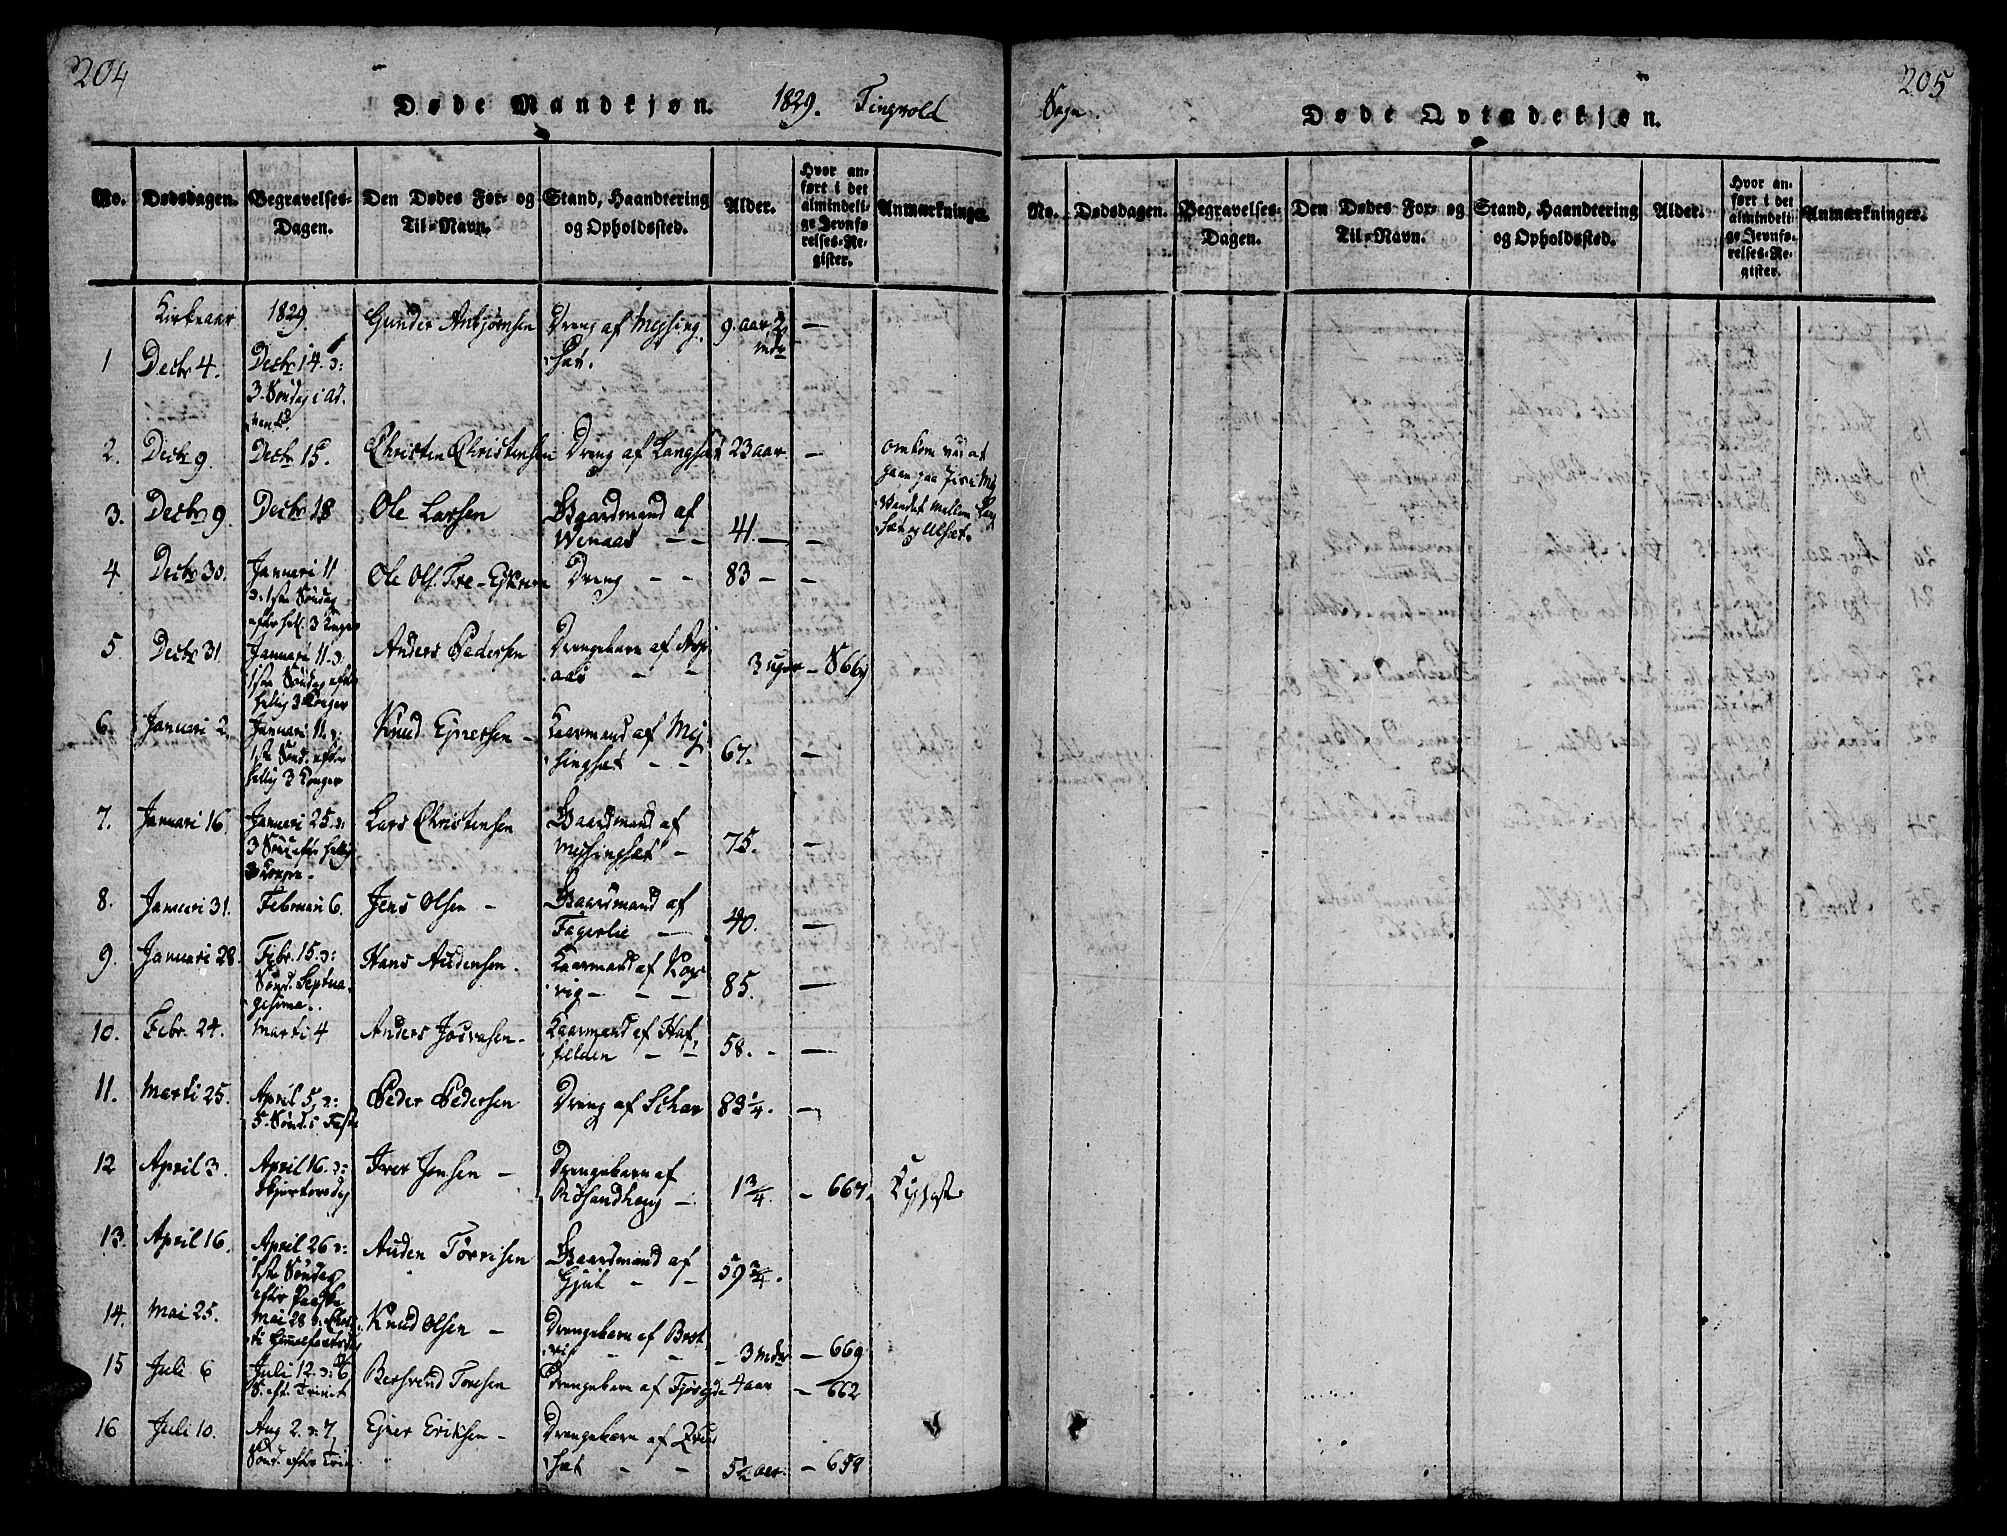 204
Døde Mandkjøn. 1829. Tingvold
No. Dødsdagen. Begravelses-Dagen. Den Dødes For- og Til-Navn. Stand, Haandtering og Opholdssted. Alder. Hvor anført i det almindelige Jevnførelses-Register. Anmærkninger.
Kirkeaar 1829.
1 Decbr 4. Decbr 14. ɔ: 3. Søndag i Advent. Gunder Anbjørnsen Dreng af Mejsingsæt. 9. aar, 2 mdr —
2. Decbr 9. Decbr 15. Christen Christensen Dreng af Langsæt 23 aar — omkom ved at gaae paa Isen
Vandet mellem Langsæt og Ulsæt.
3. Decbr 9. Decbr 18 Ole Larsen Gaardmand af Wenaas — — 41. — —
4. Decbr 30. Januari 11 ɔ: 1ste Søndag efter hel. 3 Konger Ole Ols. Dreng — — 83 — —
5. Decbr 31 Januari 11. ɔ: 1ste Søndag efter hellig 3 Konger Anders Pedersen Drengebarn af Aspaas — — 3 uger —
6. Januari 2. Januari 11. ɔ: 1ste Sønd. efter hellig 3 Konger Knud Ejnersen — Kaarmand af Mejsingsæt — — 67. —
7. Januari 16. Januari 25. ɔ: 3 Sønd. efter hellig 3 Konger — Lars Christensen Gaardmand af Mejsingsæt — 75. —
8. Januari 31. Februari 6. Jens Olsen — Gaardmand af Fagerlie — 40. —
9. Januari 28. Febr. 15. ɔ: Sønd. Septuagesima. Hans Audensen. Kaarmand af — — — 85. —
10. Febr. 24. Marti 4 Anders Josvasen — Kaarmand af Haffelden — — 58. —
11. Marti 25. April 5, ɔ: 5. Sønd. i Faste Peder Pedersen Dreng af Schar 83¼. —
12 April 3. April 16. ɔ: Skjertorsdag Iver Jensen — Drengebarn af — 1¾. — 667.
13. April 16. April 26 ɔ: 1ste Søndag efter Paaske Auden Torrisen Gaardmand af Gjul — — 59¾.
14. Mai 25. Mai 28 ɔ. Christi Himmelfartsdag Knud Olsen — Drengebarn af — — — 3 mdr — 669
15 Juli 6 Juli 12. ɔ: 6 S. eft. Trinit Bersvend Toresen Drengebarn af 4 aar — 662
16 Juli 10. Aug 2. ɔ: 7, Sønd. efter Trin. Ejner Eriksen — Drengebarn af — — 5½ aar. — 658
205
Sogn. Døde Qvindekjøn.
No. Dødsdagen. Begravelses-Dagen. Den Dødes For- og Til-Navn. Stand, Haandtering og Opholdssted. Alder. Hvor anført i det almindelige Jevnførelses-Register. Anmærkninger.